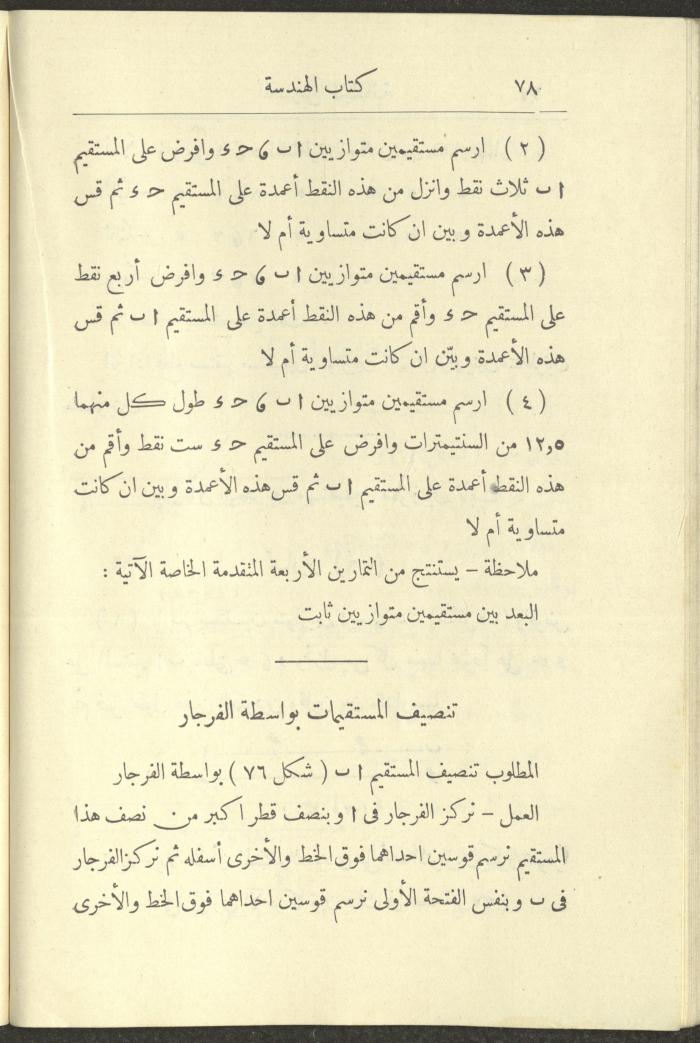 ٧٨ كتاب الهندسة
( ٢ ) ارسم مستقيمين متوازيين ا ب ، ح ء وافرض على المستقيم
ا ب ثلاث نقط وانزل من هذه النقط أعمدة على المستقيم ح ء ثم قس
هذه الأعمدة وبين ان كانت متساوية أم لا
( ٣ ) ارسم مستقيمين متوازيين ا ب ، ح ء وافرض أربع نقط
على المستقيم ح ء وأقم من هذه النقط أعمدة على المستقيم ا ب ثم قس
هذه الأعمدة وبيّن ان كانت متساوية أم لا
( ٤ ) ارسم مستقيمين متوازيين ا ب ، ح ء طول كل منهما
١٢,٥ من السنتيمترات وافرض على المستقيم ح ء ست نقط وأقم من
هذه النقط أعمدة على المستقيم ا ب ثم قس هذه الأعمدة وبين ان كانت
متساوية أم لا
ملاحظة – يستنتج من التمارين الأربعة المتقدمة الخاصة الآتية :
البعد بين مستقيمين متوازيين ثابت
تنصيف المستقيمات بواسطة الفرجار
المطلوب تنصيف المستقيم ا ب ( شكل ٧٦ ) بواسطة الفرجار
العمل – نركز الفرجار فى ا وبنصف قطر اكبر من نصف هذا
المستقيم نرسم قوسين احداهما فوق الخط والأخرى أسفله ثم نركز الفرجار
فى ب وبنفس الفتحة الأولى نرسم قوسين احداهما فوق الخط والأخرى